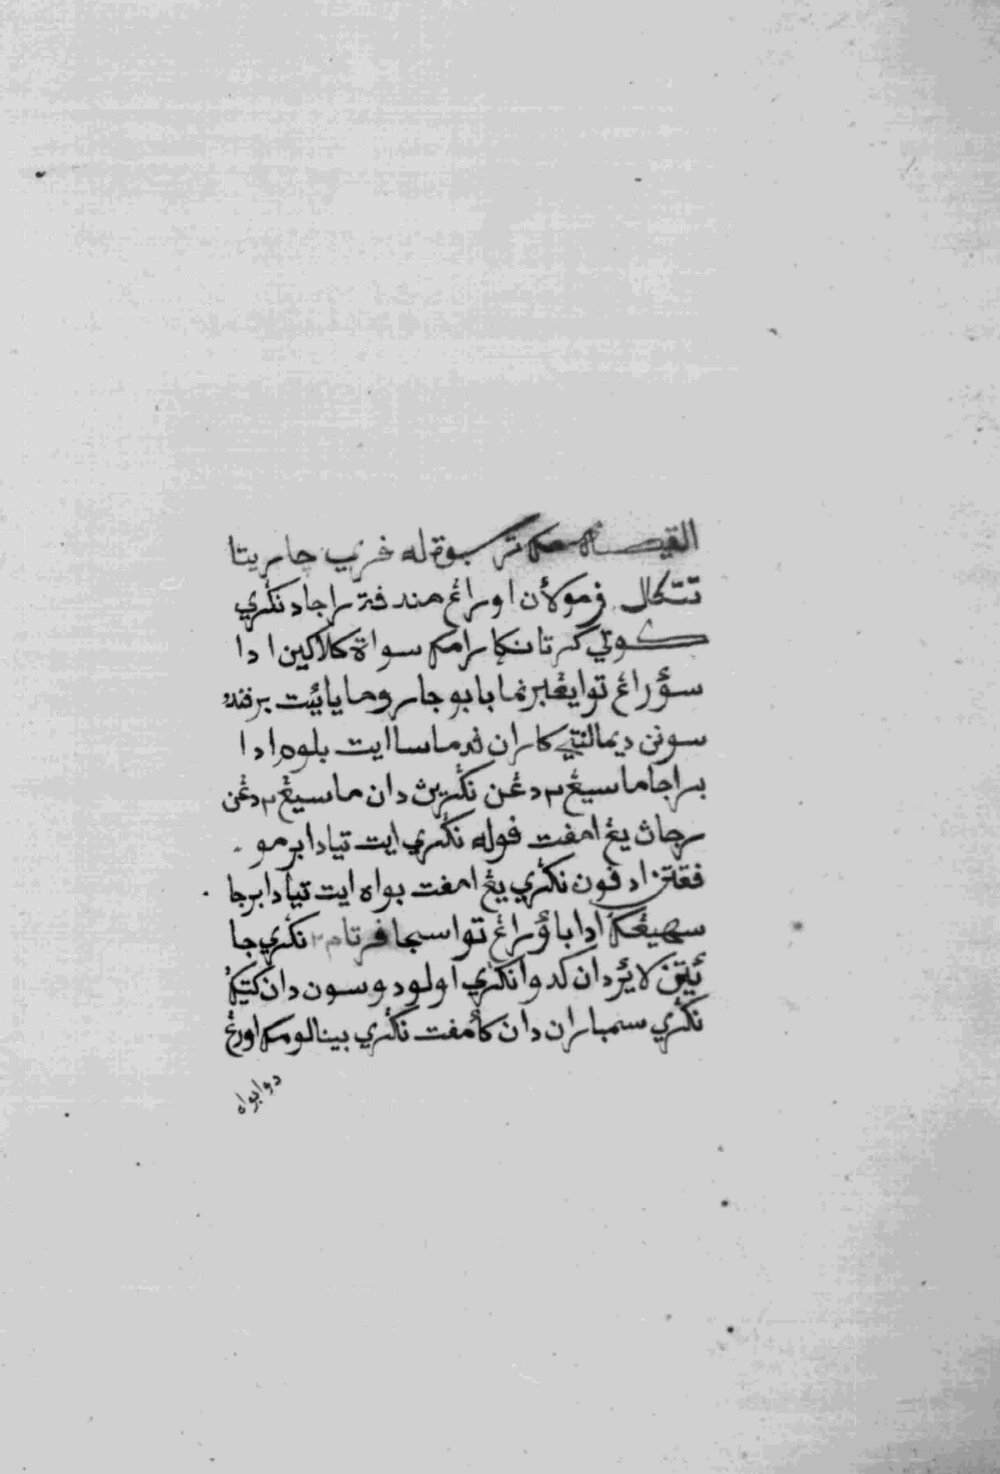 القيصه مك ترسبوتله خري چاريتا
تتكال فرمولأن اورڠ مندفتر راجا د نڬري
كوتي كرتا نڬارا مك سواة كلاكين ادا
سؤراڠ توا يڠ برنما بابو جارو مايائيت برفندو
سونن ديمالنتي كاران فد ماس ايت بلوم ادا
براجا ماسيڠ٢ دڠن نڬرين دان ماسيڠ٢ دڠن
رجاڽ يڠ امفت فوله نڬري ايت تيادا برمو
فقتن ادفون نڬري يڠ امفت بواه ايت تيادا برجا
سهيڠڬ ادا باؤراڠ توا سجا فرتام٢ نڬري جا
ئيتن لاير دان كدوا نڬري اولو دوسون دان كتيڬ
نڬري سمباران دان كأمفت نڬري بينالو مك اورڠ
دوا بواه